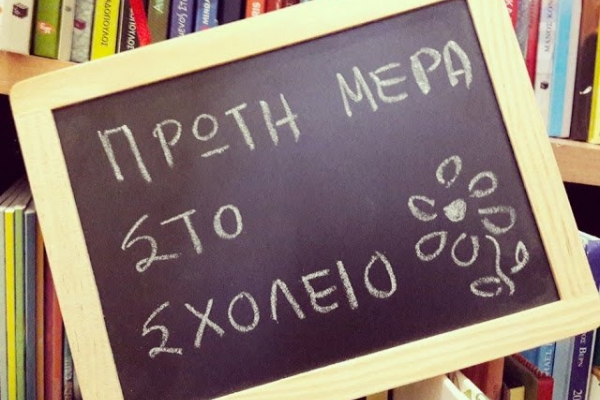 ΠΡΩΤΗ ΜΕΡΑ
ΣΤΟ
ΣΧΟΛΕΙΟ